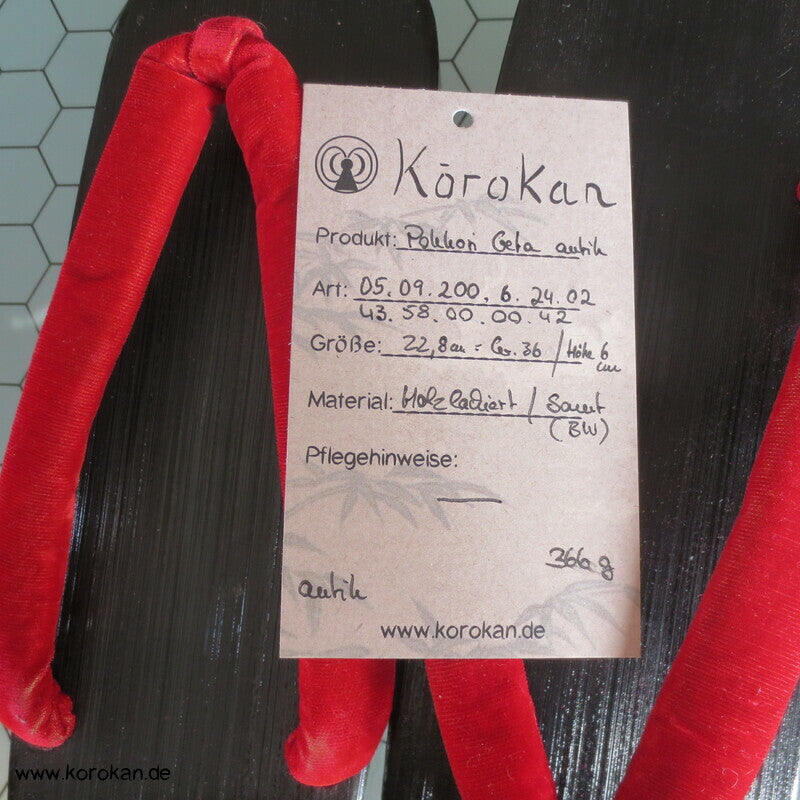 Kōrokan
Produkt: Pokkori Geta antik
Art: 05.09.200.6.24.02
43.58.00.00.42
Größe: 22,8cm = Gr. 36 / Höhe 6
cm
Material: Holz lackiert / Samt
(BW)
Pflegehinweise:
366 g
antik
www.korokan.de
www.korokan.de